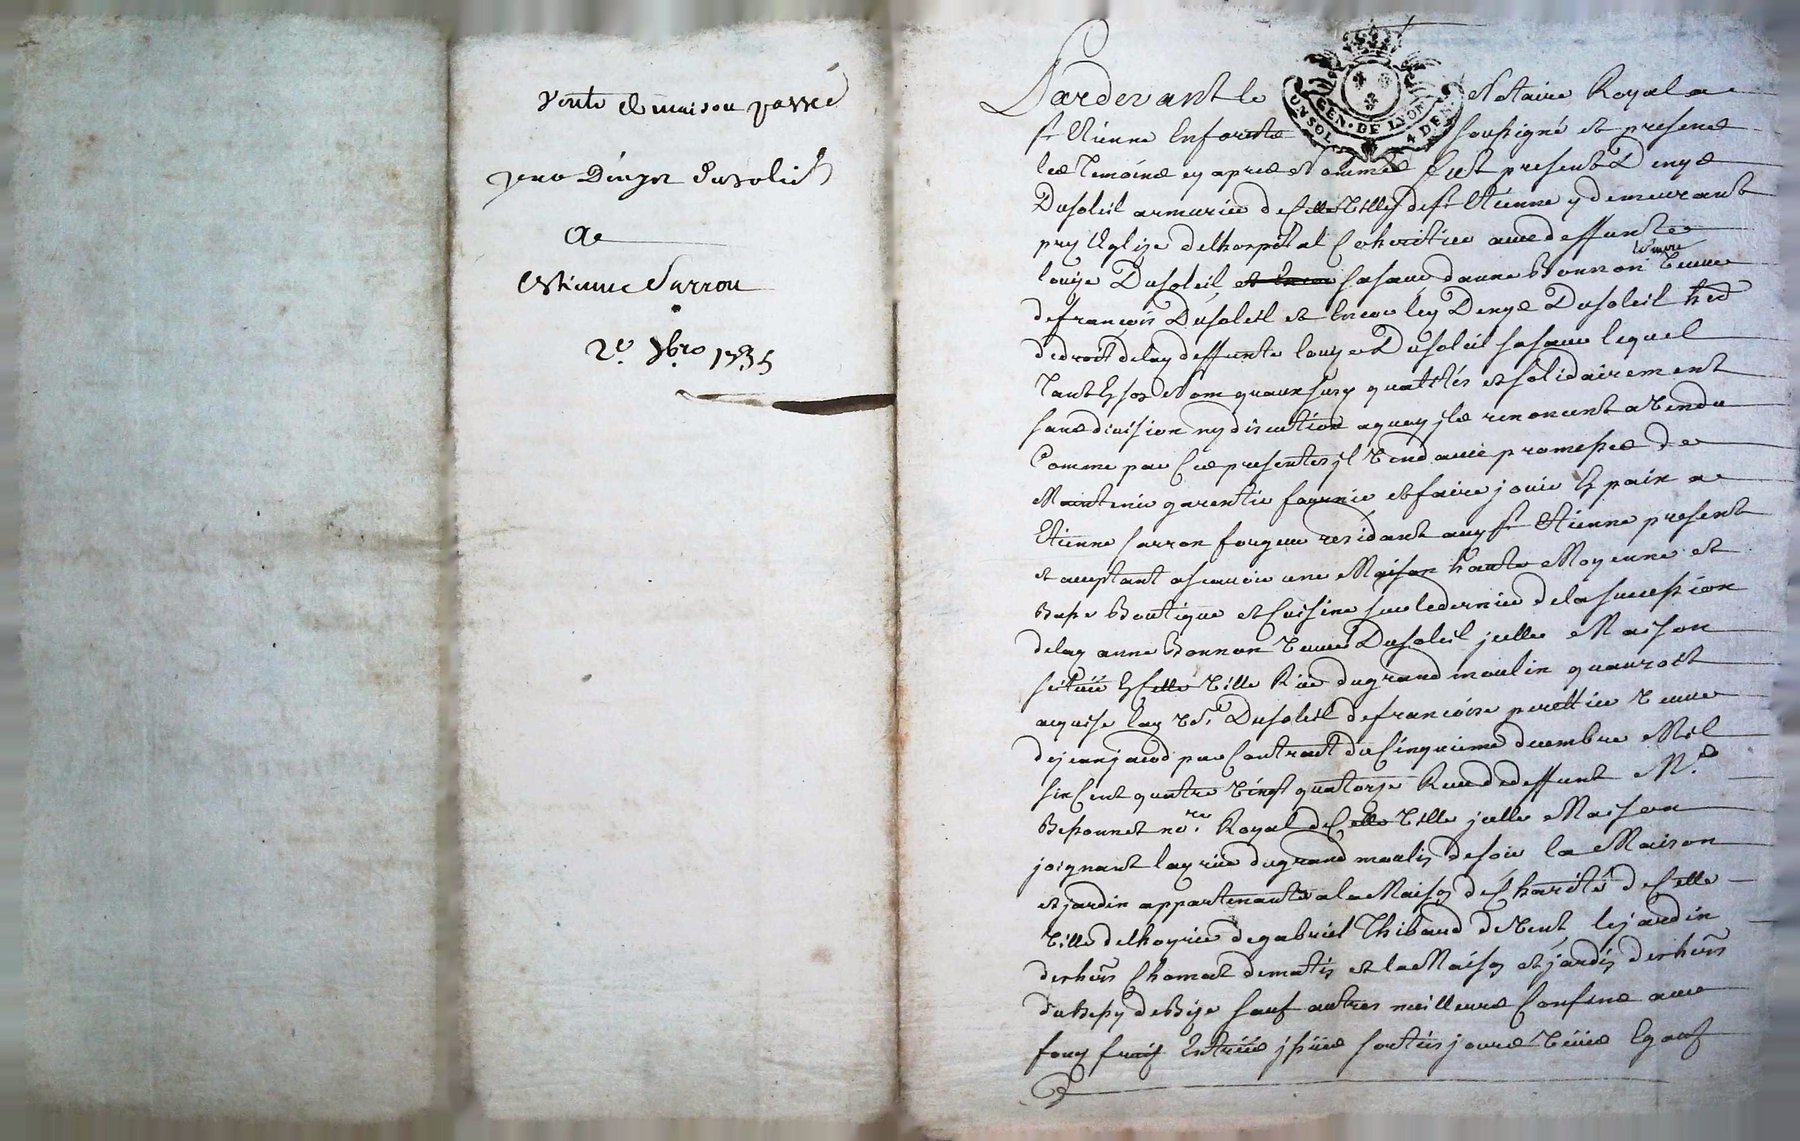 Vente de maison passée
par Denys Dusoleil
A
Estienne Sarron
2e. 9bre 1735
GEN. DE LYON
UN SOL 4 DE
Pardevant le Notaire Royal a
St Etienne en forests soussigné et presens
les Temoins cy apres Nommés fut present Denys
Dusoleil armurier de cette Ville de St Etienne y demeurant
prez l'Eglize delhospital Coheritier avec deffunte
louyze Dusoleil et encor sa sœur danne Bonnon veuve
de francois Dusoleil et Encor ley Denys Dusoleil her
de droit delad deffunte louyze Dusoleil sa sœur lequel
Tant En son Nom quaux susd qualités et solidairement
sans division ny discution a quoy jls renoncent a Vendu
Comme par Ces presentes jl Vend avec promesses de
Maintenir garentir fournir et faire jouir En paix a
Etienne Sarron forgeur residant aud St Etienne present
et acceptant a scavoir une Maison haute Moyenne et
Basse Boutique et Cuisine sur le dernier de la succession
delad anne Bonnon veuve Dusoleil jcelle Maison
scituée En cette Ville Rüe du grand moulin quauroit
acquise lad Vve Dusoleil de francoise perettier veuve
de jean jacod par Contract du Cinquieme decembre Mil
six Cent quatre Vingt quatorze Receu de deffunt Me
Bessonnet nore. Royal de Cette Ville jcelle Maison
joignant lad rüe du grand moulin de soir la Maison
et jardin appartenants a la Maison de Charité de Cette
Ville de lhoirie de gabriel Thibaud de Vent le jardin
des hers Chomat de matin et la Maison et jardin des hers
de Bize sauf autres meilleurs Confins avec
fonds Entrées jssües sorties jours Veües